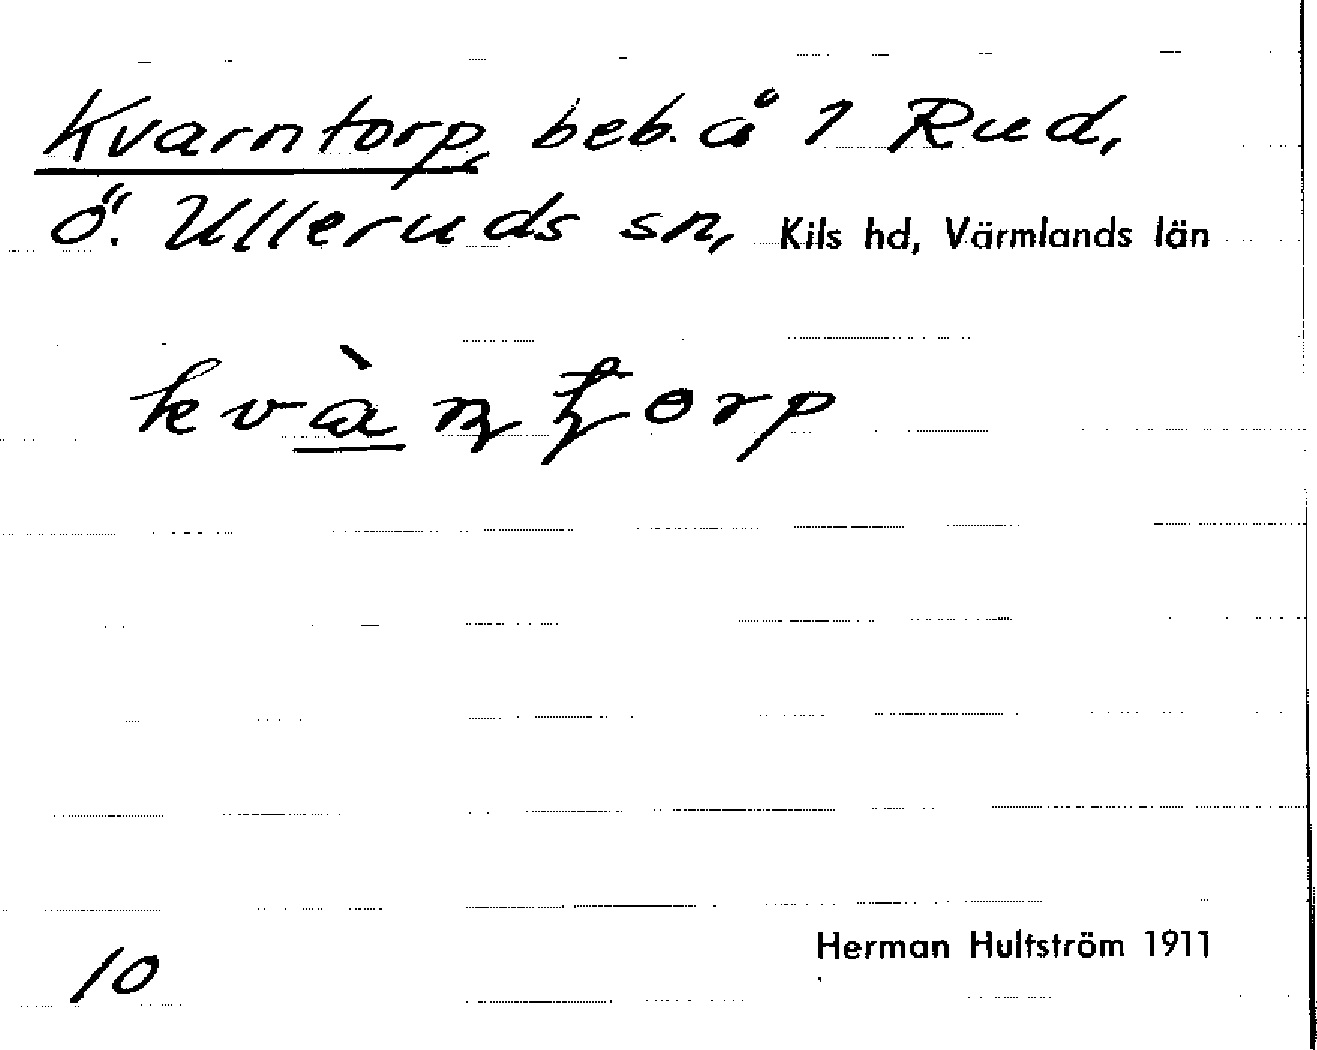 Kvarntorp, beb. å 1 Rud,
Ö. Ulleruds sn, Kils hd, Värmlands län
kvàɳʈorp
10
Herman Hultström 1911